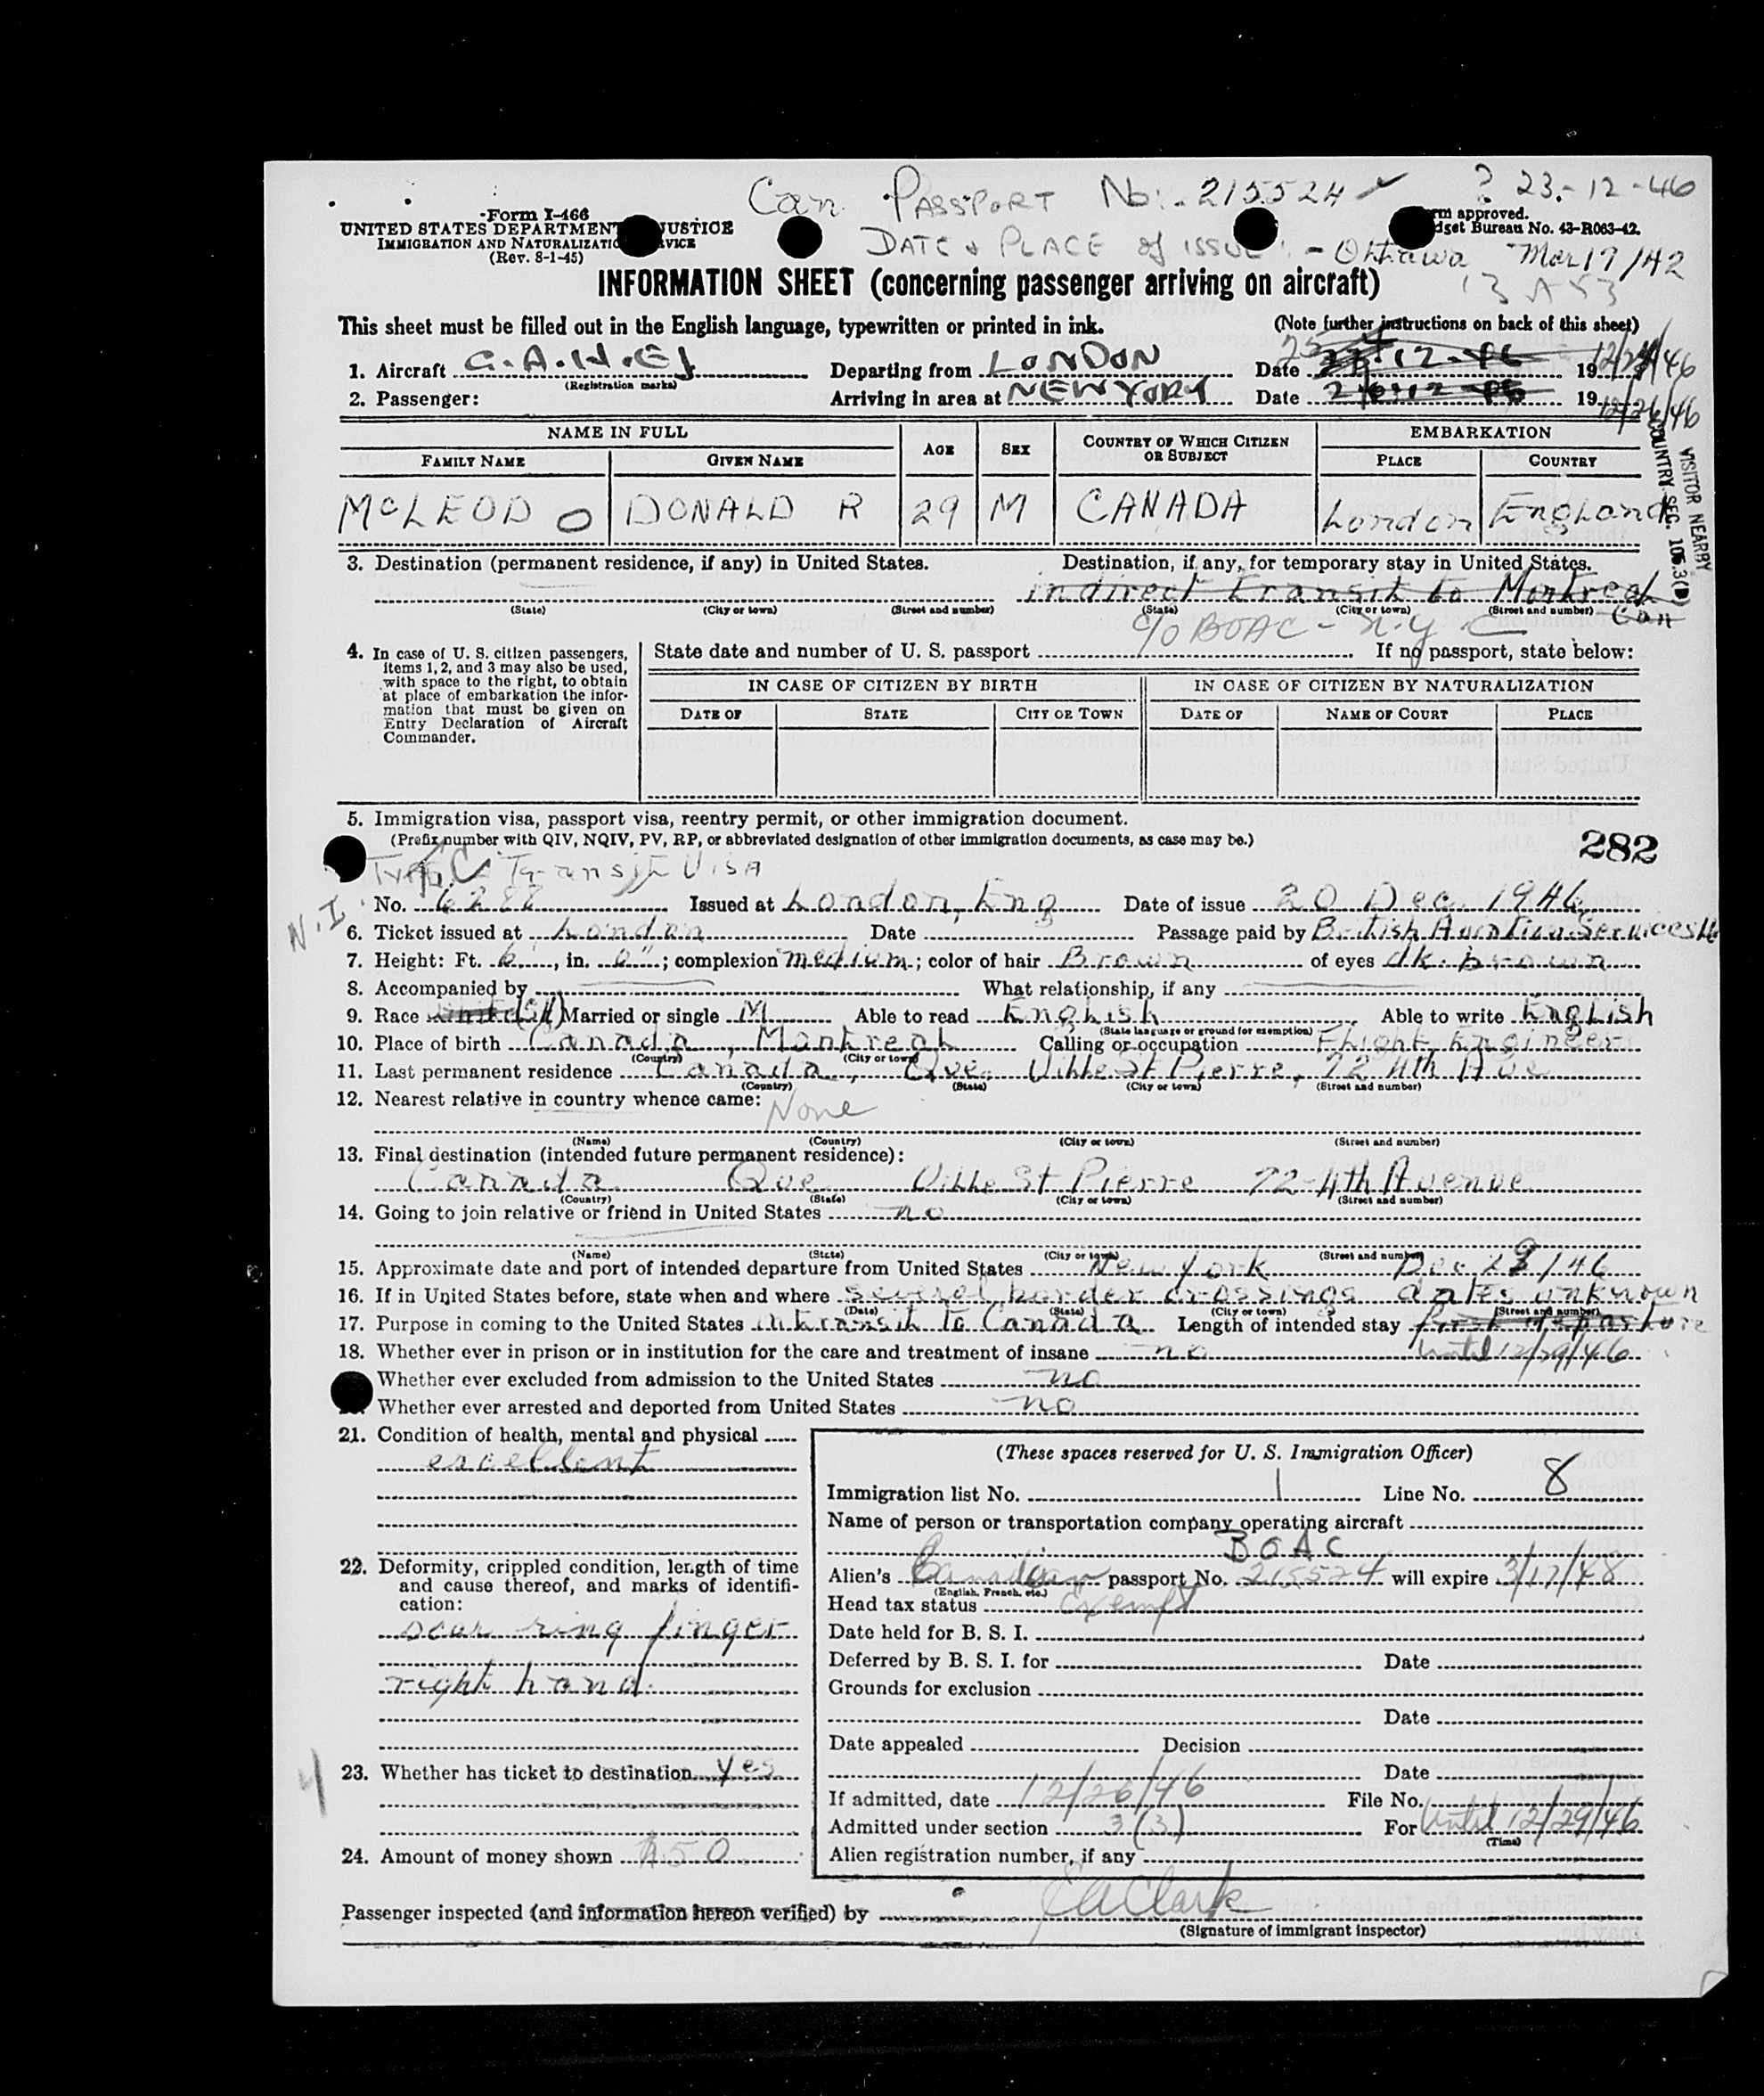 Can PASSPORT No:- 215524 ? 23-12-46
Form I-466
UNITED STATES DEPARTMENT JUSTICE
IMMIGRATION AND NATURALIZATIO RVICE
(Rev. 8-1-45)
rm approved.
dget Bureau No. 43-R063-42.
DATE & PLACE of ISSUE:- Ottawa Mar 17/42
INFORMATION SHEET (concerning passenger arriving on aircraft)
This sheet must be filled out in the English language, typewritten or printed in ink. (Note further instructions on back of this sheet)
1. Aircraft G.A.H.EJ Departing from LONDON Date 12-46 19 12/24/46
(Registration marks)
2. Passenger: Arriving in area at NEW YORK Date 26-12-46 19 12/26/46
NAME IN FULL AGE SEX COUNTRY OF WHICH CITIZEN OR SUBJECT EMBARKATION
FAMILY NAME GIVEN NAME PLACE COUNTRY
MCLEOD DONALD R 29 M CANADA London England
VISITOR NEARBY
COUNTRY SEC. 105.3(B)
3. Destination (permanent residence, if any) in United States. Destination, if any, for temporary stay in United States.
indirect transit to Montreal Can
(State) (City or town) (Street and number) (State) (City or town) (Street and number)
c/o BOAC - N.Y.C
4. In case of U. S. citizen passengers, items 1, 2, and 3 may also be used, with space to the right, to obtain at place of embarkation the information that must be given on Entry Declaration of Aircraft Commander.
State date and number of U. S. passport If no passport, state below:
IN CASE OF CITIZEN BY BIRTH IN CASE OF CITIZEN BY NATURALIZATION
DATE OF STATE CITY OR TOWN DATE OF NAME OF COURT PLACE
5. Immigration visa, passport visa, reentry permit, or other immigration document.
(Prefix number with QIV, NQIV, PV, RP, or abbreviated designation of other immigration documents, as case may be.)
282
Transit VISA
N.I.
No. 6288 Issued at London, Eng Date of issue 20 Dec. 1946
6. Ticket issued at London Date Passage paid by British Aviation Services Ltd
7. Height: Ft. 6', in. 0"; complexion medium; color of hair Brown of eyes dk. brown
8. Accompanied by What relationship, if any
9. Race Married or single M Able to read English Able to write English
(State language or ground for exemption)
10. Place of birth Canada, Montreal Calling or occupation Flight Engineer
(Country) (City or town)
11. Last permanent residence Canada, Que. Ville St Pierre, 72 4th Ave
(Country) (State) (City or town) (Street and number)
12. Nearest relative in country whence came: None
(Name) (Country) (City or town) (Street and number)
13. Final destination (intended future permanent residence):
Canada Que Ville St Pierre 72-4th Avenue
(Country) (State) (City or town) (Street and number)
14. Going to join relative or friend in United States no
(Name) (State) (City or town) (Street and number)
15. Approximate date and port of intended departure from United States New York Dec 29/46
16. If in United States before, state when and where several border crossings dates unknown
(Date) (State) (City or town) (Street and number)
17. Purpose in coming to the United States intransit to Canada Length of intended stay first departure
18. Whether ever in prison or in institution for the care and treatment of insane no until 12/29/46
Whether ever excluded from admission to the United States no
Whether ever arrested and deported from United States no
21. Condition of health, mental and physical
excellent
22. Deformity, crippled condition, length of time and cause thereof, and marks of identification:
scar ring finger
right hand.
23. Whether has ticket to destination yes
4
24. Amount of money shown $50
(These spaces reserved for U. S. Immigration Officer)
Immigration list No. 1 Line No. 8
Name of person or transportation company operating aircraft
BOAC
Alien's Canadian passport No. 215524 will expire 3/17/48
(English, French, etc.)
Head tax status Exempt
Date held for B. S. I.
Deferred by B. S. I. for Date
Grounds for exclusion
Date
Date appealed Decision
Date
If admitted, date 12/26/46 File No.
Admitted under section 3(3) For Until 12/29/46
(Time)
Alien registration number, if any
Passenger inspected (and information hereon verified) by Clark
(Signature of immigrant inspector)